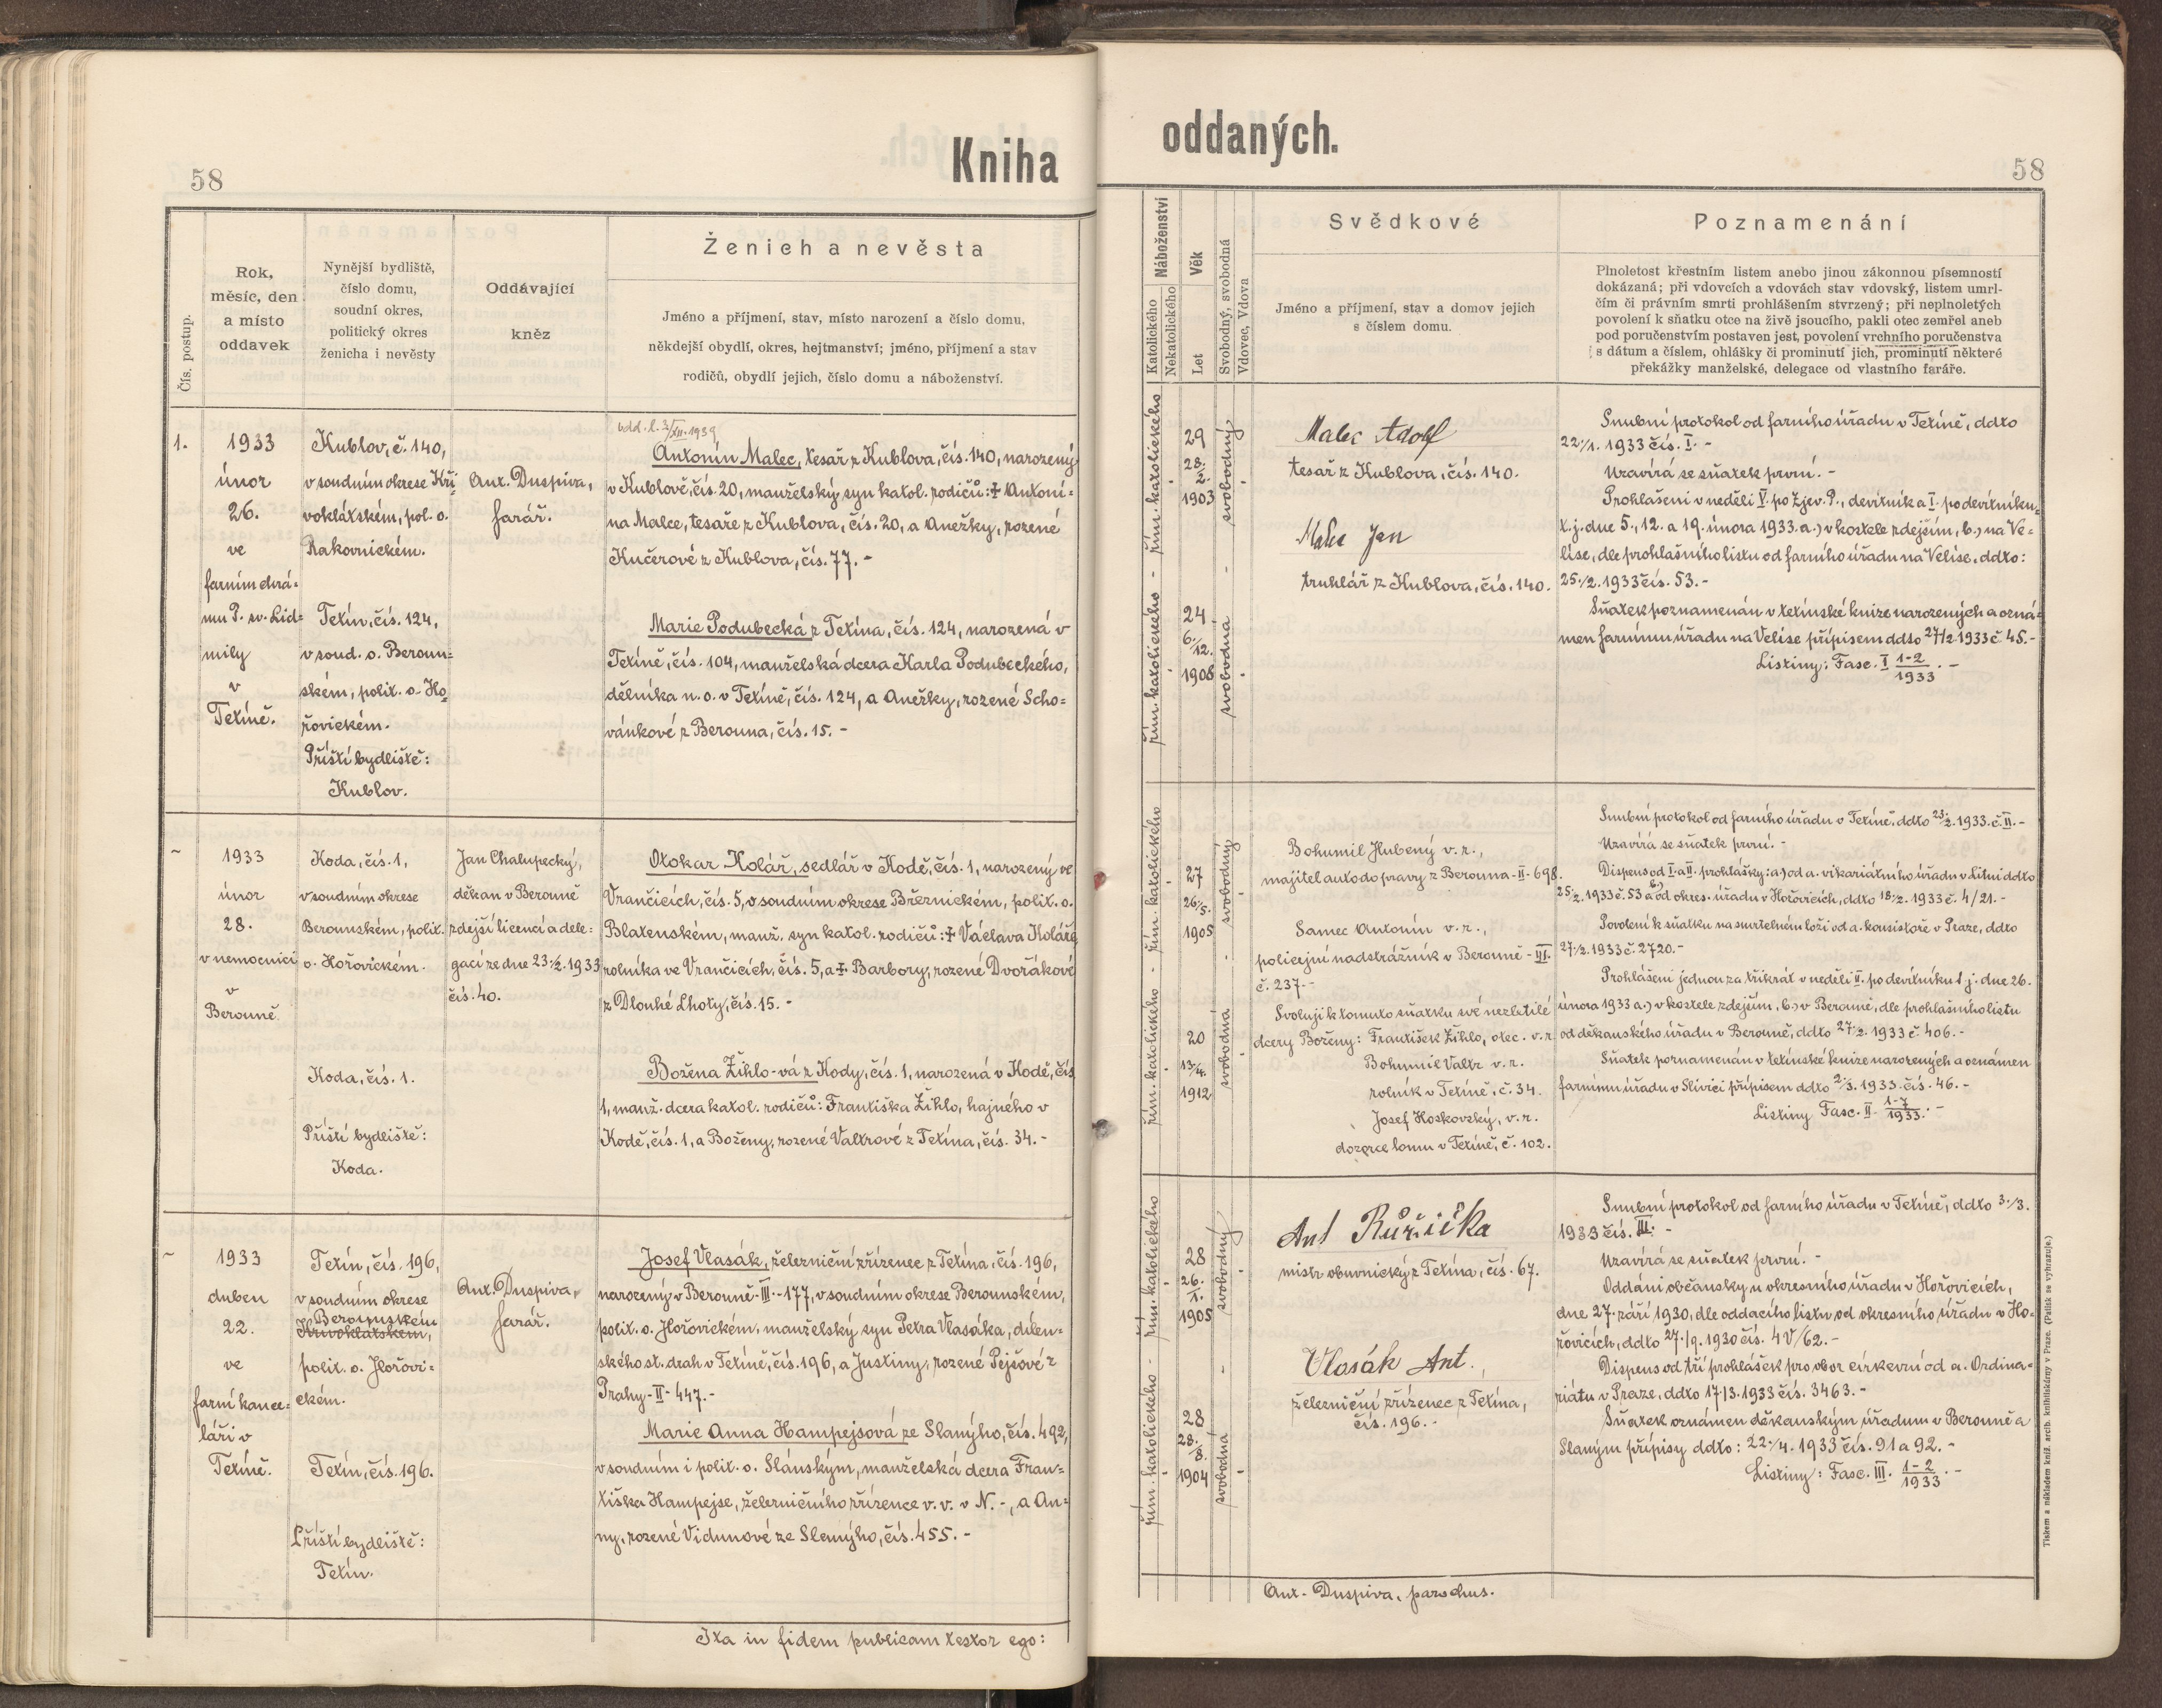 58
Kniha
oddaných.
58
Čís. postup.
Rok,
měsíc, den
a místo
oddavek
Nynější bydliště,
číslo domu,
soudní okres,
politický okres
ženicha i nevěsty
Oddávající
kněz
Ženich a nevěsta
Jméno a příjmení, stav, místo narození a číslo domu,
někdejší obydlí, okres, hejtmanství; jméno, příjmení a stav
rodičů, obydlí jejich, číslo domu a náboženství.
Náboženství
Katolického
Nekatolického
Věk
Let
Svobodný, svobodná
Vdovec, Vdova
Svědkové
Jméno a příjmení, stav a domov jejich
s číslem domu.
Poznamenání
Plnoletost křestním listem anebo jinou zákonnou písemností
dokázaná; při vdovcích a vdovách stav vdovský, listem umrl-
čím či právním smrti prohlášením stvrzený; při neplnoletých
povolení k sňatku otce na živě jsoucího, pakli otec zemřel aneb
pod poručenstvím postaven jest, povolení vrchního poručenstva
s dátum a číslem, ohlášky či prominutí jich, prominutí některé
překážky manželské, delegace od vlastního faráře.
1.
1933
únor
26.
ve
farním chrá-
mu P. sv. Lid-
mily
v
Tetíně.
Kublov, č. 140,
v soudním okrese Kři-
voklátském, pol. o.
Rakovnickém.
Tetín, čís. 124,
v soud. o. Beroun-
ském, polit. o. Ho-
řovickém.
Příští bydliště:
Kublov.
Ant. Duspiva,
farář.
odd. l. 2/XII. 1939
Antonín Malec, tesař z Kublova, čís. 140, narozený
v Kublově, čís. 20, manželský syn katol. rodičů: † Antoní-
na Malce, tesaře z Kublova, čís. 20, a Anežky, rozené
Kučerové z Kublova, čís. 77. -
Marie Podubecká z Tetína, čís. 124, narozená v
Tetíně, čís. 104, manželská dcera Karla Podubeckého,
dělníka n. o. v Tetíně, čís. 124, a Anežky, rozené Scho-
vánkové z Berouna, čís. 15. -
řím. katolického - řím. katolického
29
28./2.
1903
24
6./12.
1908
svobodný
svobodná
Malec Adolf
tesař z Kublova, čís. 140.
Malec Jan
truhlář z Kublova, čís. 140.
Snubní protokol od farního úřadu v Tetíně, ddto
22./1. 1933 čís. I. -
Uzavírá se sňatek první. -
Prohlášení v neděli V. po Zjev. P., devítník a I. po devítníku,
t. j. dne 5., 12. a 19. února 1933. a.) v kostele zdejším, b.) na Ve-
líse, dle prohlašního listu od farního úřadu na Velíse, ddto:
25./2. 1933 čís. 53. -
Sňatek poznamenán v tetínské knize narozených a ozná-
men farnímu úřadu na Velíse přípisem ddto 27/2 1933 č 45. -
Listiny: Fasc. I 1-2/1933. -
~
1933
únor
28.
v nemocnici
v
Berouně.
Koda, čís. 1,
v soudním okrese
Berounském, polit.
o. Hořovickém.
Koda, čís. 1.
Příští bydliště:
Koda.
Jan Chalupecký,
děkan v Berouně
zdejší licencí a dele-
gací ze dne 23./2. 1933
čís. 40.
Otokar Kolář, sedlář v Kodě, čís. 1, narozený ve
Vrančicích, čís. 5, v soudním okrese Březnickém, polit. o.
Blatenském, manž. syn katol. rodičů: † Václava Koláře,
rolníka ve Vrančicích, čís. 5, a † Barbory, rozené Dvořákové
z Dlouhé Lhoty, čís. 15. -
Božena Žihlo-vá z Kody, čís. 1, narozená v Kodě, čís.
1, manž. dcera katol. rodičů: Františka Žihlo, hajného v
Kodě, čís. 1, a Boženy, rozené Valtrové z Tetína, čís. 34. -
řím. katolického - řím. katolického
27
26./5.
1905
20
13/4.
1912
svobodný
svobodná
Bohumil Hubený v. r.,
majitel autodopravy z Berouna-II-698.
Samec Antonín v. r.,
policejní nadstrážník v Berouně-III.
č. 237.-
Svoluji k tomuto sňatku své nezletilé
dcery Boženy: František Žihlo, otec. v. r.
Bohumil Valtr v. r.
rolník v Tetíně, č. 34.
Josef Hoskovský, v. r.
dozorce lomu v Tetíně, č. 102.
Snubní protokol od farního úřadu v Tetíně. ddto 23./2. 1933. č. II. -
Uzavírá se sňatek první. -
Dispens od I. a II. prohlášky: a.) od a. vikariátního úřadu v Litni ddto
25./2. 1933 č. 53 a b.) od okres. úřadu v Hořovicích, ddto 18./2. 1933 č. 4/21. -
Povolení k sňatku na smrtelném loži od a. konsistoře v Praze, ddto
27./2. 1933 č. 2720. -
Prohlášení jednou za třikrát v neděli II. po devítníku t. j. dne 26.
února 1933 a.) v kostele zdejším. b.) v Berouně, dle prohlašního listu
od děkanského úřadu v Berouně, ddto 27./2. 1933 č. 406. -
Sňatek poznamenán v tetínské knize narozených a oznámen
farnímu úřadu v Slivici přípisem ddto 2./3. 1933. čís. 46. -
Listiny Fasc. II. 1-7/1933. -
~
1933
duben
22.
ve
farní kance-
láři v
Tetíně.
Tetín, čís. 196,
v soudním okrese
Berounském
Křivoklátském,
polit. o. Hořovi-
ckém.
Tetín, čís. 196.
Příští bydliště:
Tetín.
Ant. Duspiva,
farář.
Josef Vlasák, železniční zřízenec z Tetína, čís. 196,
narozený v Berouně-III.-177, v soudním okrese Berounském,
polit. o. Hořovickém, manželský syn Petra Vlasáka, dílen-
ského st. drah v Tetíně, čís. 196, a Justiny, rozené Pejšové z
Prahy-II-447. -
Marie Anna Hampejsová ze Slaného, čís. 492,
v soudním i polit. o. Slánským, manželská dcera Fran-
tiška Hampejse, železničního zřízence v. v. v N. -, a An-
ny, rozené Vidunové ze Slaného, čís. 455. -
řím. katolického - řím. katolického
28
26./1.
1905
28
28./8.
1904
svobodný
svobodná
Ant Růžička
mistr obuvnický z Tetína, čís. 67.
Vlasák Ant.,
železniční zřízenec z Tetína,
čís. 196. -
Snubní protokol od farního úřadu v Tetíně, ddto 3./3.
1933 čís. III. -
Uzavírá se sňatek první. -
Oddáni občansky u okresního úřadu v Hořovicích,
dne 27. září 1930, dle oddacího listu od okresního úřadu v Ho-
řovicích, ddto 27./9. 1930 čís. 4 V/62. -
Dispens od tří prohlášek pro obor církevní od a. Ordina-
riátu v Praze, ddto 17/3. 1933 čís. 3463. -
Sňatek oznámen děkanským úřadům v Berouně a
Slaným přípisy ddto: 22./4. 1933 čís. 91 a 92. -
Listiny: Fasc. III. 1-2/1933. -
Ita in fidem publicam testor ego:
Ant. Duspiva, parochus.
Tiskem a nákladem kníž. arcib. knihtiskárny v Praze. (Patisk se vyhrazuje.)